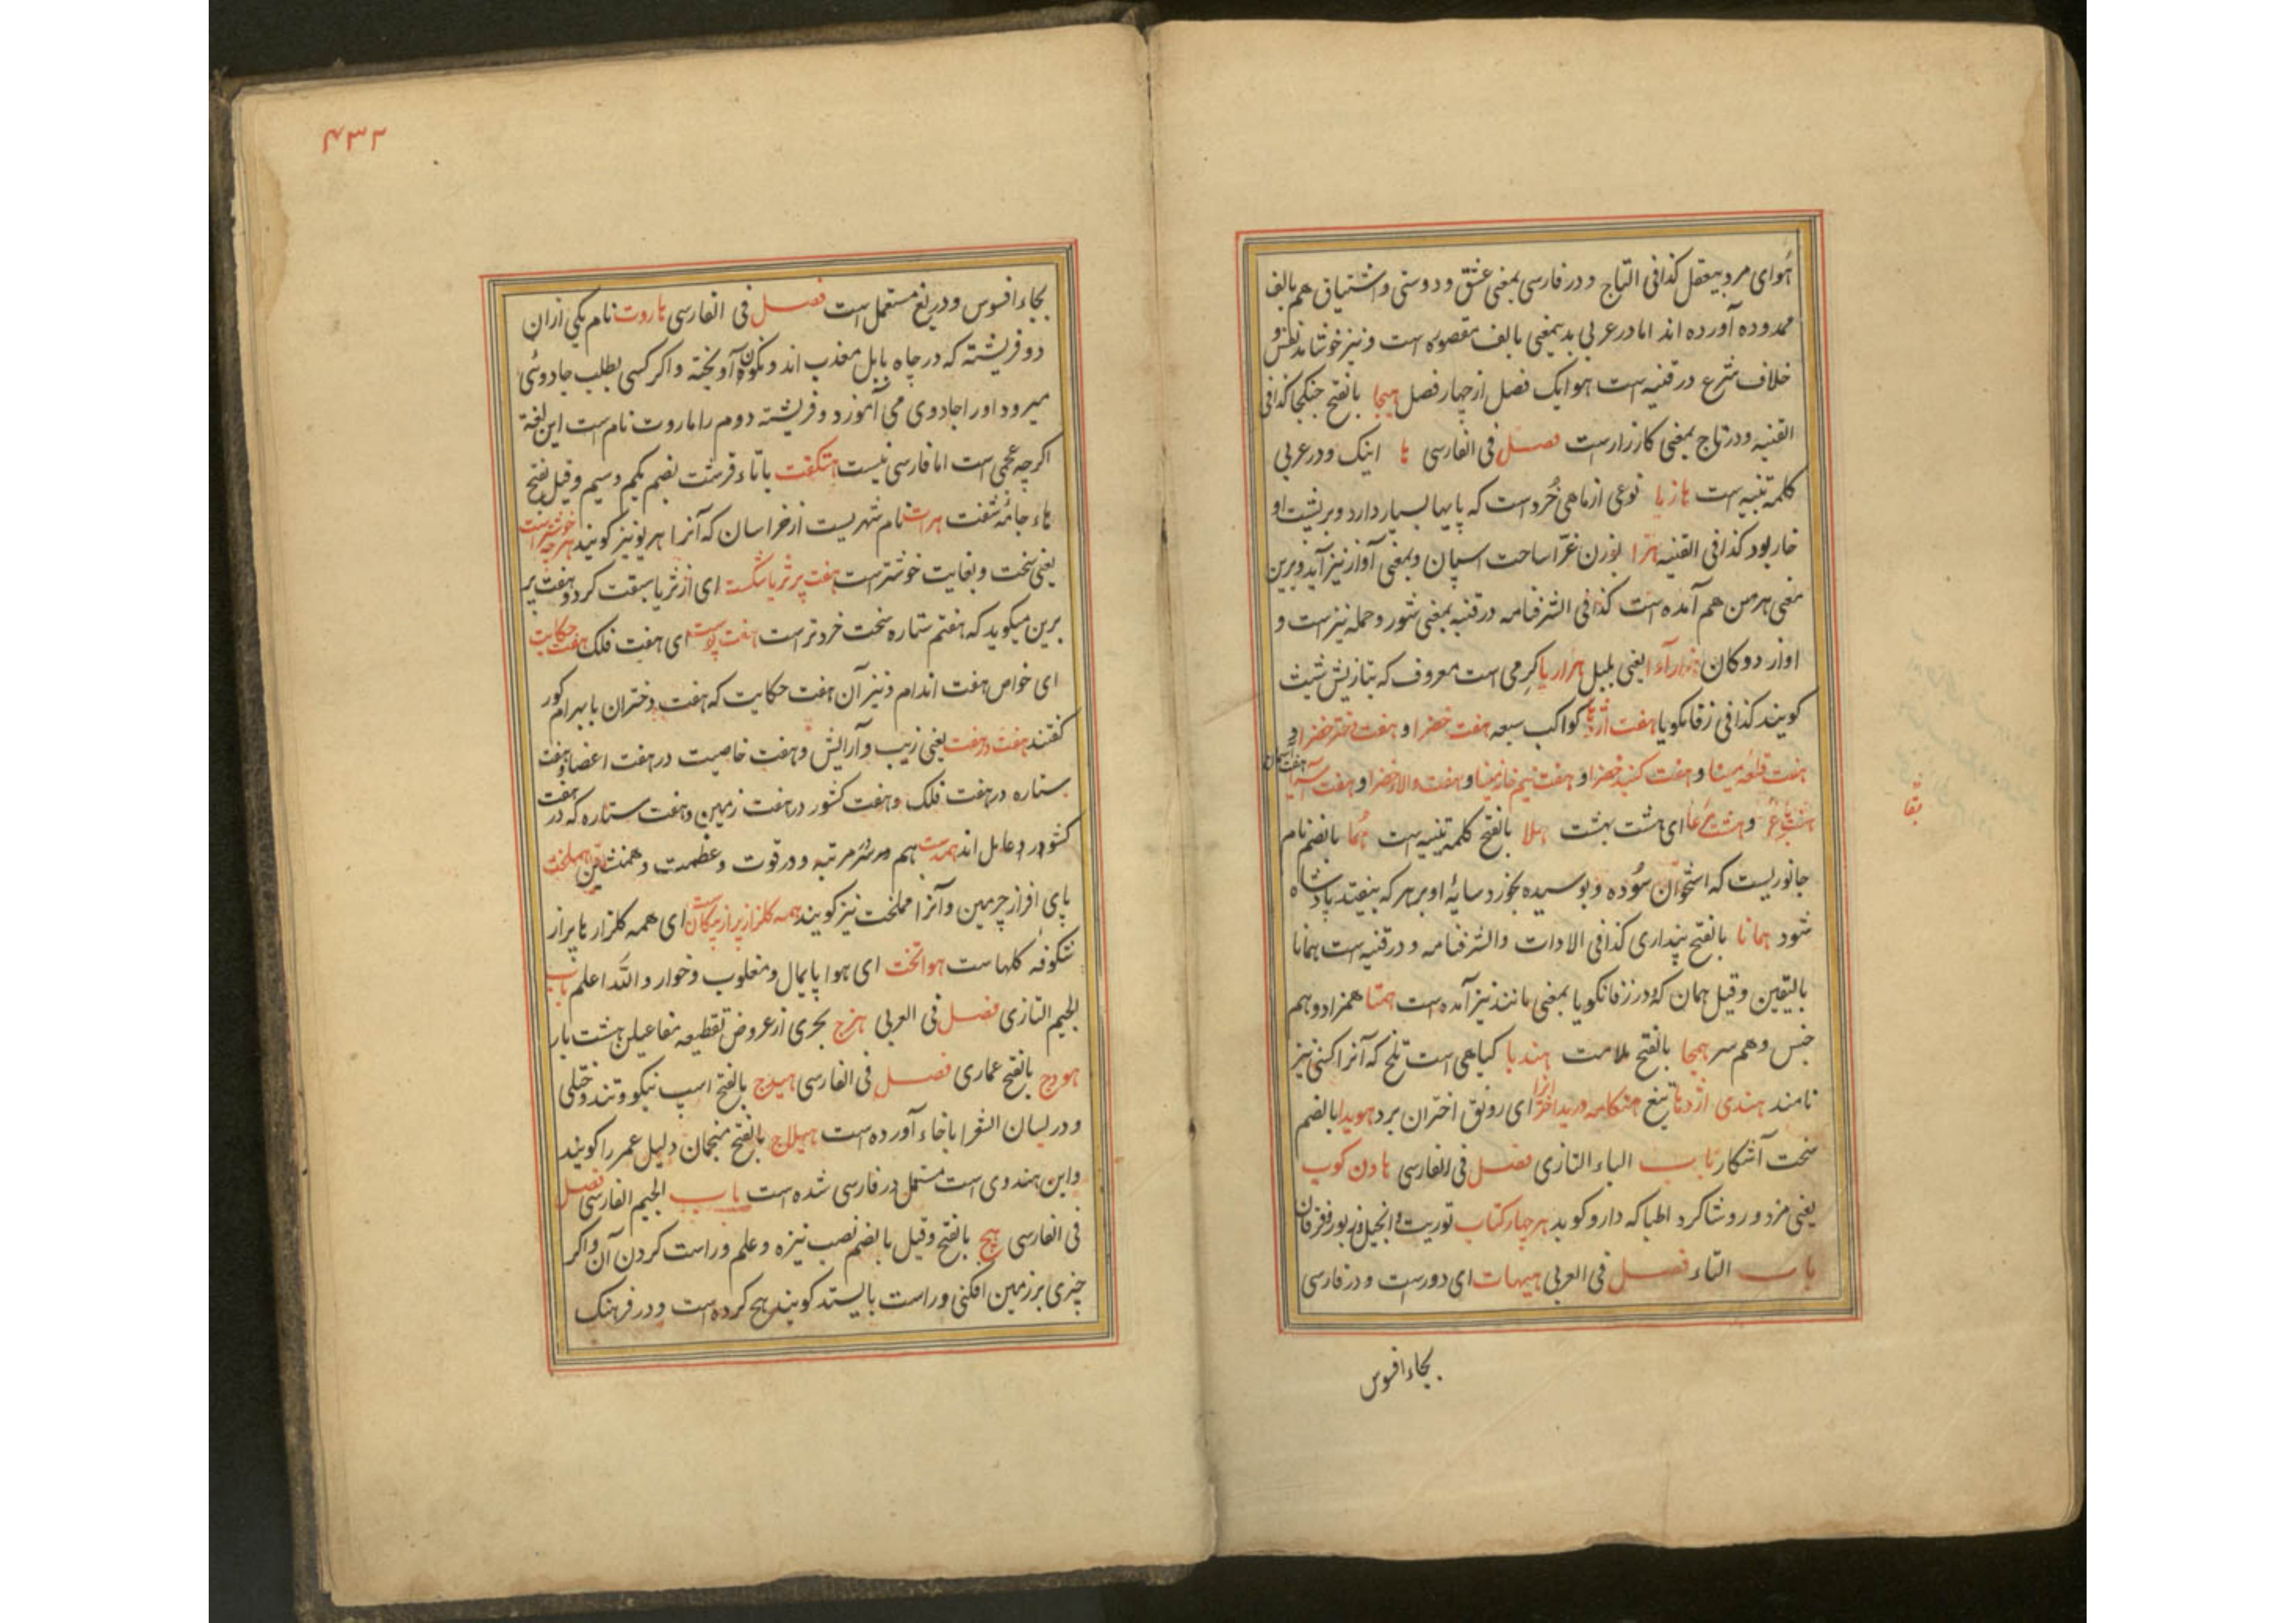 هوای مرد بیعقل کذا فی التاج و در فارسی بمعنی عشق و دوستی و اشتیاق هم بالف
ممدوده آورده اند اما در عربی بدینمعنی بالف مقصوره است و نیز خوشامد نفس و
خلاف شرع در قنیه است هوا یک فصل از چهار فصل هیجا بالفتح جنک کذا فی
القنیه و در تاج بمعنی کارزارست فصل فی الفارسی ها اینک و در عربی
کلمه تنبیه است هازبا نوعی از ماهی خرد است که پایها بسیار دارد و بر پشت او
خار بود کذا فی القنیه هرا بوزن غرا ساحت اسپان و بمعنی آواز نیز آید و برین
معنی هرمن هم آمده است کذا فی الشرفنامه در قنیه بمعنی شور و حمله نیز است و
اواز ددکان هزار آوا یعنی بلبل هزارپا کرمی است معروف که بتازیش شبث
کویند کذا فی زفانکویا هفت اژدها کواکب سبعه هفت خضرا و هفت دختر خضرا و
هفت قلعه مینا و هفت کنبد خضرا و هفت نیم خانه مینا و هفت والاء خضرا و هفت
ای هشت بهشت هلا بالفتح کلمه تنبیه است هما بالضم نام
جانوریست که استخوان سوده و بوسیده بخورد سایهٔ او بر هر که بیفتد پادشاه
شود همانا بالفتح پنداری کذا فی الادات والشرفنامه و در قنیه است همانا
بالیقین و قیل همان که در زفانکویا بمعنی مانند نیز آمده است همتا همزاد و هم
جنس و هم سر همجا بالفتح ملامت هندبا کیاهی است تلخ که آنرا کسنی نیز
نامند هندی اژدها تیغ هنکامه درید اخترانرا ای رونق اختران برد هویدا بالضم
سخت آشکار باب الباء التازی فصل فی الفارسی هاون کوب
یعنی مزدور و شاکرد اطبا که دارو کوبد هر چهار کتاب توریت و انجیل و زبور و فرقان
باب التاء فصل فی العربی هیهات ای دورست و در فارسی
بجاء افسوس
۴۳۲
بجاء افسوس و دریغ مستعمل است فصل فی الفارسی هاروت نام یکی ازان
دو فریشته که در چاه بابل معذب اند و نکون آویخته و اکر کسی بطلب جادوئی
میرود او را جادوی می آموزد و فریشته دوم را ماروت نام است این لغة
اکرچه عجمی است اما فارسی نیست هتکفت باتاء قرشت بضم یکم و سیم و قیل بفتح
هاء جامه شفت هرات نام شهریست از خراسان که آنرا هریو نیز کویند هرچه خوشترست
یعنی سخت و بغایت خوشترست هفت پر ثریا شکسته ای از ثریا سبقت کرد و هفت پر
برین میکوید که هفتم ستاره سخت خردترست هفت پوست ای هفت فلک هفت حکایت
ای خواص هفت اندام و نیز آن هفت حکایت که هفت دختران با بهرام کور
کفتند هفت در هفت یعنی زیب و آرایش و هفت خاصیت در هفت اعضا و هفت
ستاره در هفت فلک و هفت کشور در هفت زمین و هفت ستاره که در هفت
کشور در عامل اند همدست هم و مرتبه و در قوت و عظمت و همنشین هملخت
پای افراز چرمین و آنرا مملخت نیز کویند همه کلزار پر از پیکانست ای همه کلزارها پر از
شکوفه کلهاست هوا تخت ای هوا پایمال و مغلوب و خوار والله اعلم باب
الجیم التازی فصل فی العربی هزج بحری از عروض تقطیعه مفاعیلن هشت بار
هودج بالفتح عماری فصل فی الفارسی هیدج بالفتح اسپ نیکو و تند و ختلی
و در لسان الشعرا باخاء آورده است هیلاج بالفتح منجمان دلیل عمر را کویند
و این هندوی است مستعمل در فارسی شده است باب الجیم الفارسی فصل
فی الفارسی هچ بالفتح و قیل بالضم نصب نیزه و علم و راست کردن آن و اکر
چیزی بر زمین افکنی و راست بایستد کویند هچ کرده است و در فرهنک